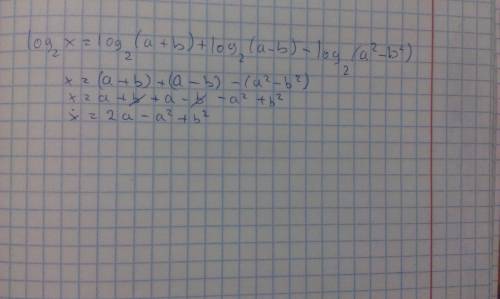 log₂ x = log₂ (a + b) + log₂ (a - b) - log₂ (a² - b²)
x = (a + b) + (a - b) - (a² - b²)
x = a + b + a - b - a² + b²
x = 2a - a² + b²